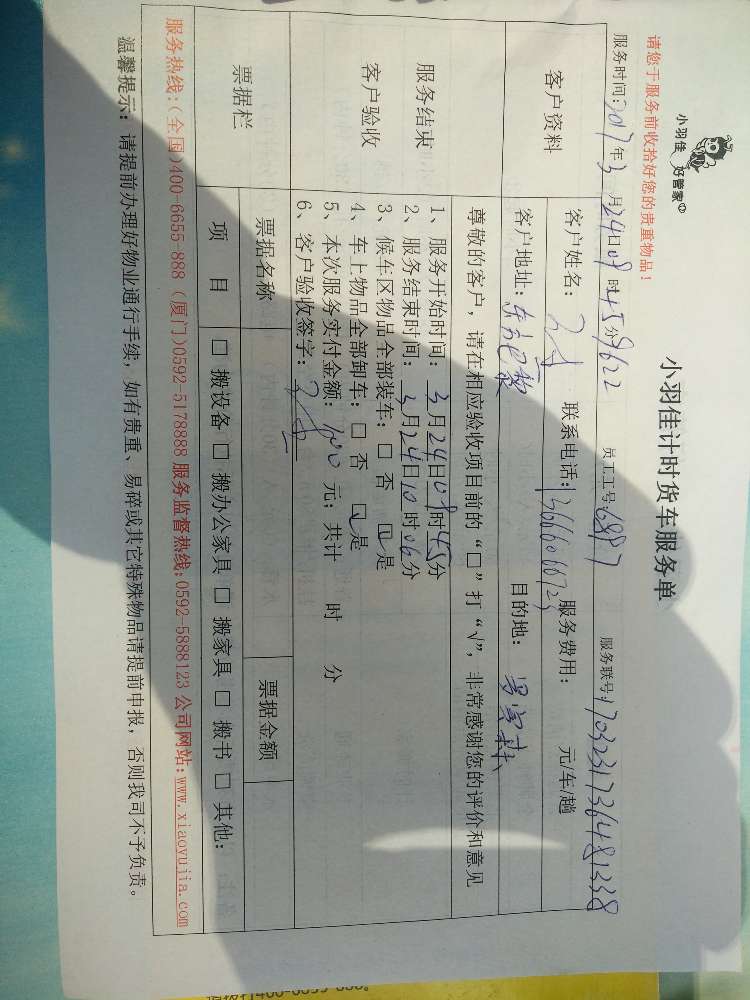 小羽佳 好管家
小羽佳计时货车服务单
请您于服务前收拾好您的贵重物品!
服务时间:2017年3月24日08时45分 员工工号: 服务联号:1703231736481338
客户资料
客户姓名: 联系电话: 服务费用: 元/车/趟
客户地址: 目的地:
尊敬的客户,请在相应验收项目前的“□”打“√”,非常感谢您的评价和意见
服务结束
客户验收
1、服务开始时间:3月24日08时45分
2、服务结束时间:3月24日10时06分
3、候车区物品全部装车:□ 否 ☑是
4、车上物品全部卸车:□ 否 ☑是
5、本次服务实付金额: 元;共计 时 分
6、客户验收签字:
票据栏
票据名称 票据金额
项 目 □ 搬设备 □ 搬办公家具 □ 搬家具 □ 搬书 □ 其他:
服务热线:(全国)400-6655-888 (厦门)0592-5178888 服务监督热线:0592-5888123 公司网站:www.xiaoyujia.com
温馨提示:请提前办理好物业通行手续,如有贵重、易碎或其它特殊物品请提前申报,否则我司不予负责。